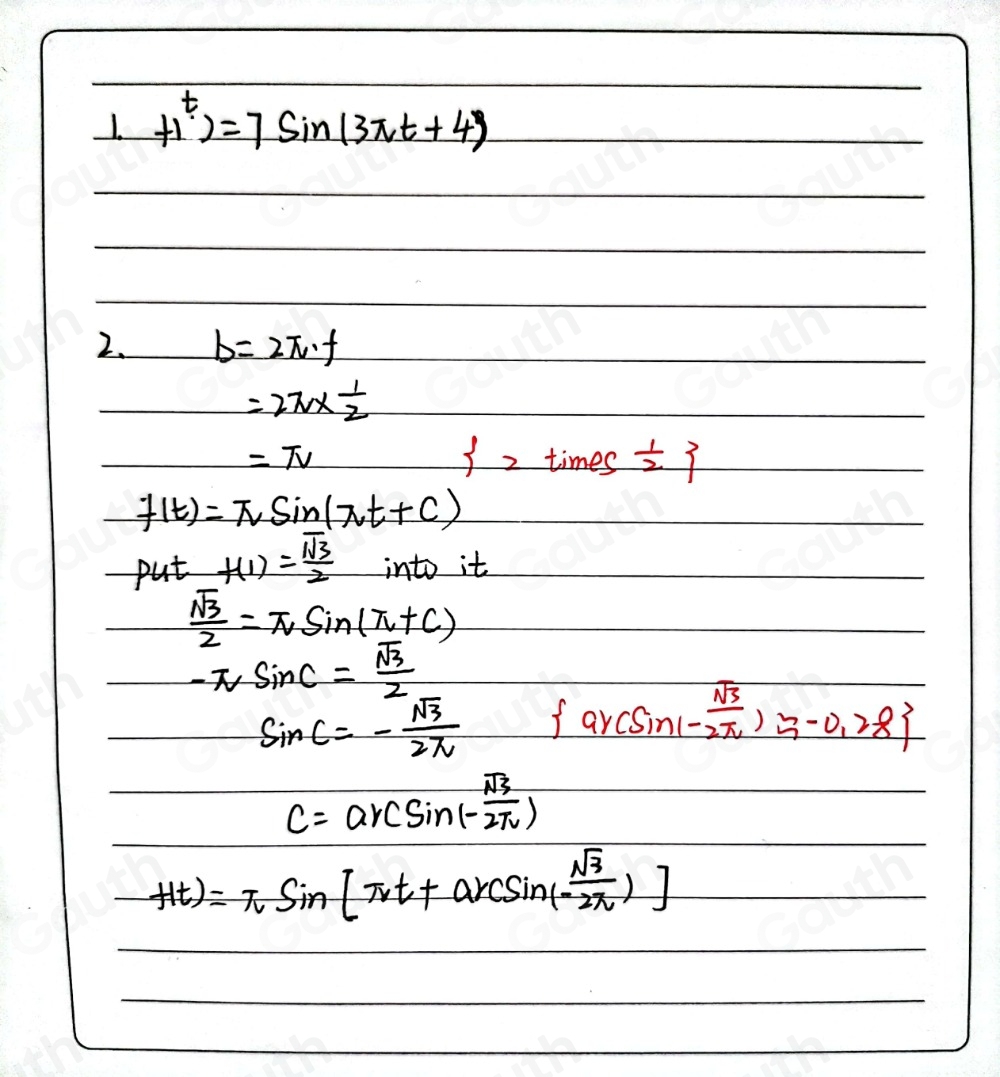 1. f(t)=7 Sin(3πt+4)
2. b=2π·f
=2π×1/2
=π { 2 times 1/2 }
f(t)=π Sin(πt+C)
put f(1)=√3/2 into it
√3/2=π Sin(π+C)
-π SinC=√3/2
SinC=-√3/2π { arcSin(-√3/2π)≒-0.28}
C=arcSin(-√3/2π)
f(t)=π Sin[πt+arcSin(-√3/2π)]
Gauth